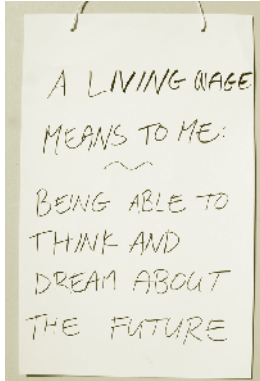 A LIVING WAGE
MEANS TO ME:
BEING ABLE TO
THINK AND
DREAM ABOUT
THE FUTURE